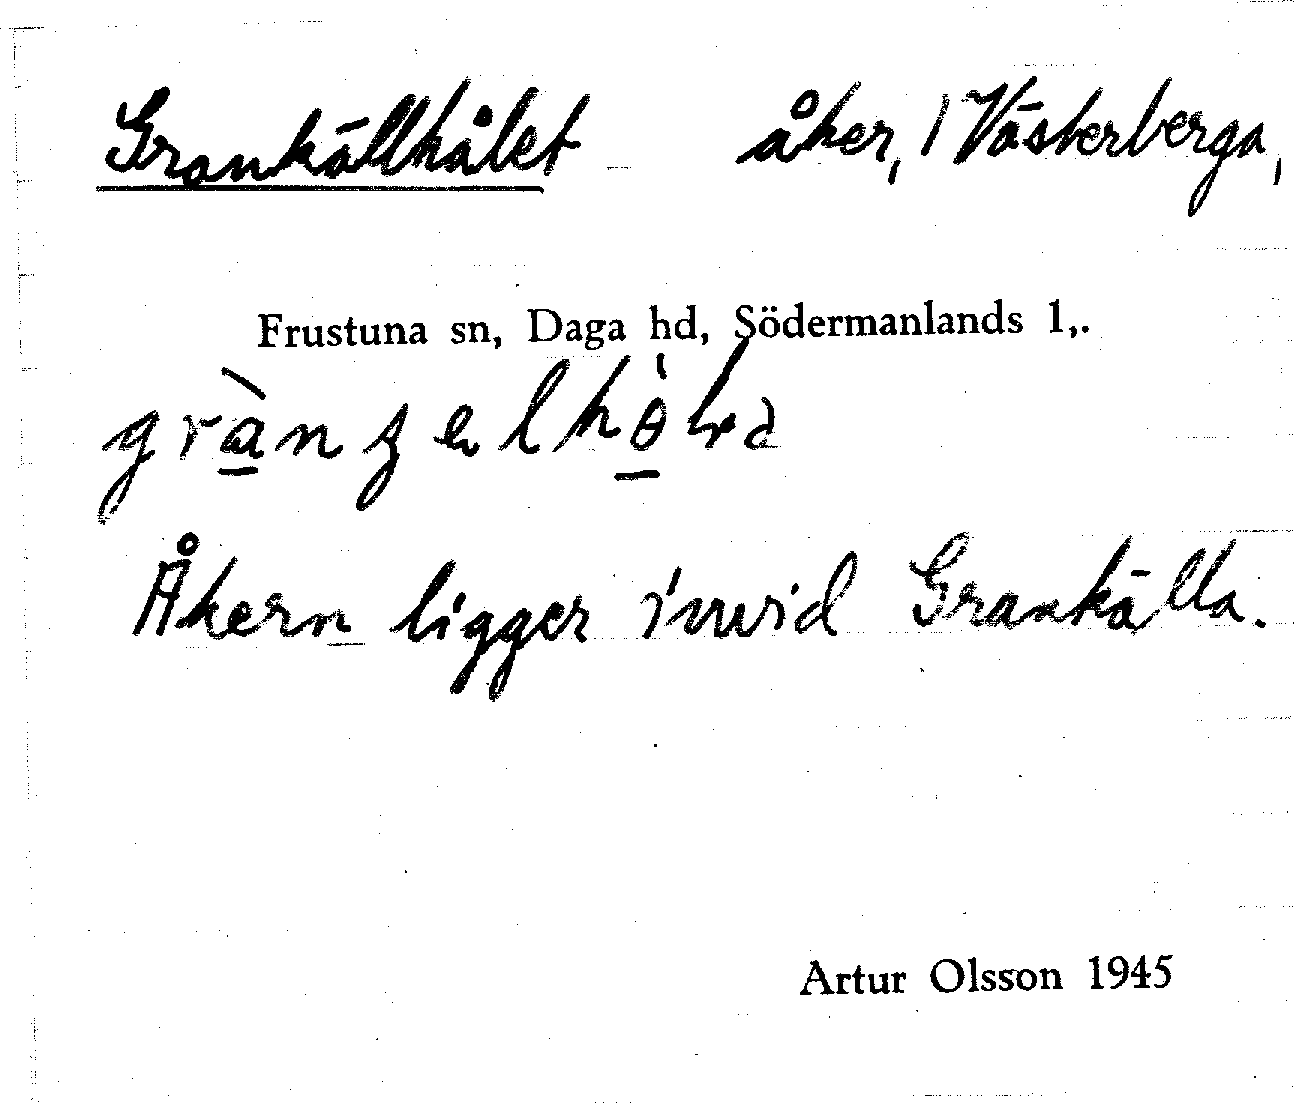 Grankällhålet åker, 1 Västerberga,
Frustuna sn, Daga hd, Södermanlands l,.
Åkern ligger invid Grankälla.
Artur Olsson 1945